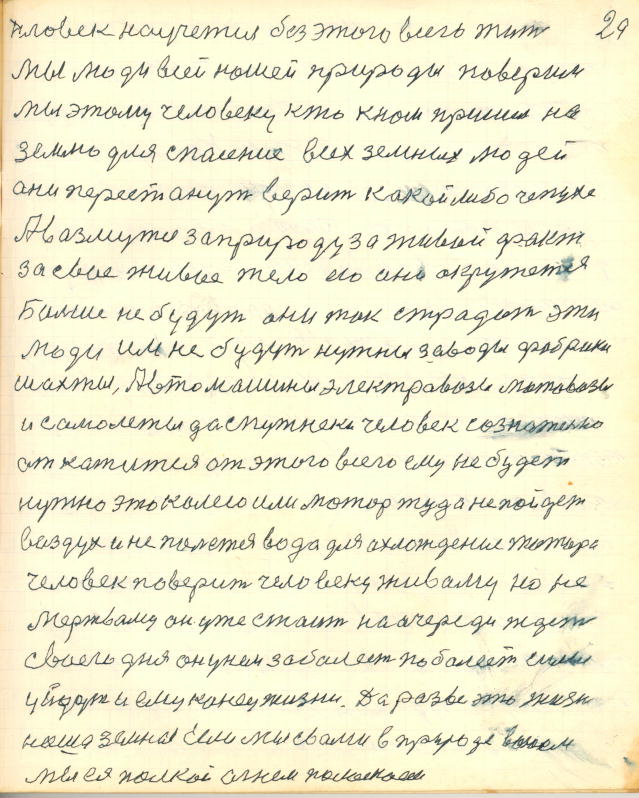 29
человек научется без этого всего жит
мы люди всей нашей природы поверим
мы этому человеку кто кнам пришел на
землю для спасение всех земных людей
ани перестанут верит какойлибо чепухе
Авазмутся заприроду за живый факт
засвое живое тело его ано окружется
Больше не будут они так страдат эти
люди им не будут нужны заводы фабрики
шахты, Автомашины электравозы мотовозы
и самолеты даспутнеки человек сознательно
откатится от этого всего ему не будет
нужно это колесо или мотор туда непойдет
ваздух и не польется вода для охлождение мотора
человек поверит человеку живаму но не
мертваму он уже стоит на очереди ждет
своего дня онунем заболеет поболеет силы
уйдут и ему конец жизни. Да разве это жизн
наша земная если мы свами в природе
мыся полкой огнем